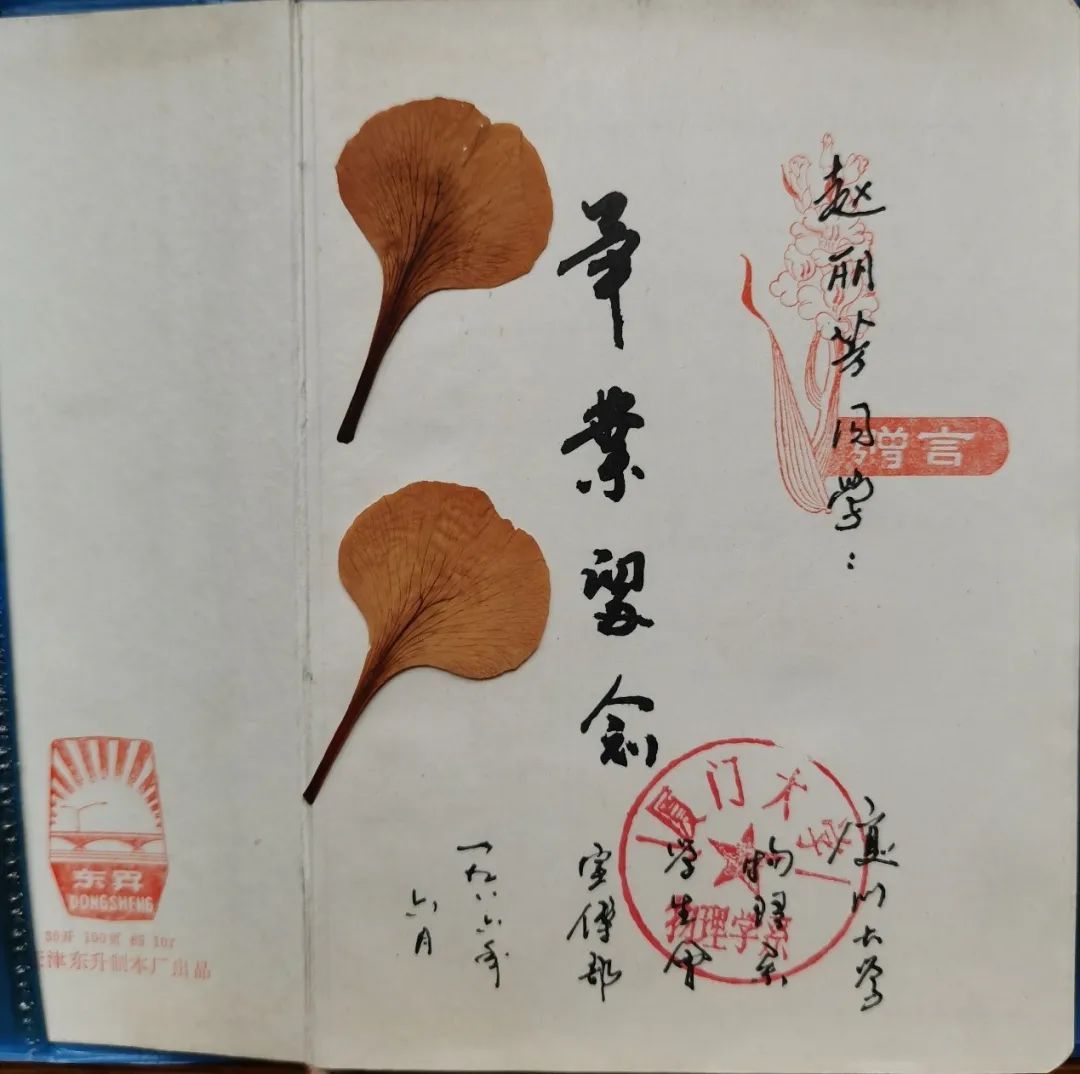 赵丽芳同学：
赠言
毕业留念
厦门大学
物理系
学生会
宣传部
一九八六年
六月
厦门大学
物理学系
东升
DONGSHENG
开 100页
津东升制本厂出品